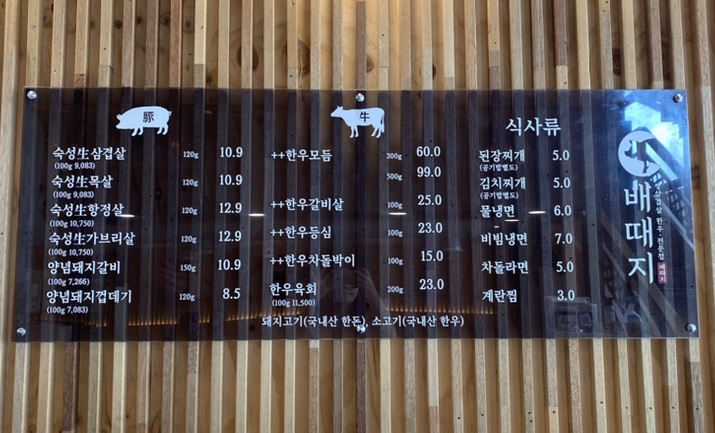 豚
숙성生삼겹살 120g 10.9
(100g 9,083)
숙성生목살 120g 10.9
(100g 9,083)
숙성生항정살 120g 12.9
(100g 10,750)
숙성生가브리살 120g 12.9
(100g 10,750)
양념돼지갈비 150g 10.9
(100g 7,266)
양념돼지껍데기 120g 8.5
(100g 7,083)
牛
++한우모듬 300g 60.0
500g 99.0
++한우갈비살 100g 25.0
++한우등심 100g 23.0
++한우차돌박이 100g 15.0
한우육회 200g 23.0
(100g 11,500)
식사류
된장찌개 5.0
(공기밥별도)
김치찌개 5.0
(공기밥별도)
물냉면 6.0
비빔냉면 7.0
차돌라면 5.0
계란찜 3.0
돼지고기(국내산 한돈), 소고기(국내산 한우)
배때지
숙성삼겹살 한우 · 전문점